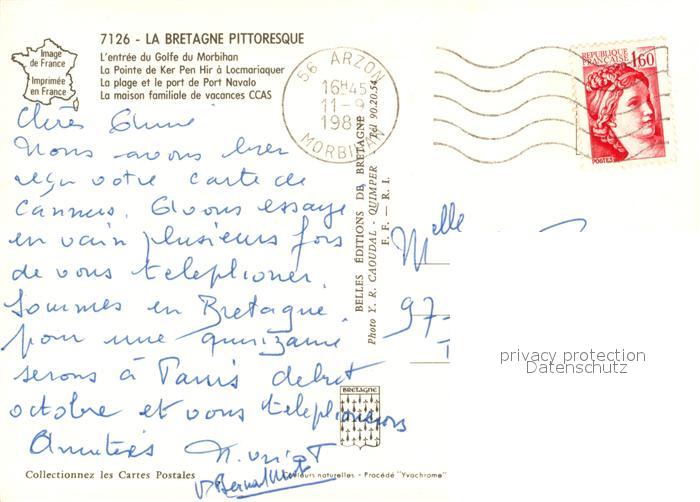 7126 - LA BRETAGNE PITTORESQUE
L'entrée du Golfe du Morbihan
La Pointe de Ker Pen Hir à Locmariaquer
La plage et le port de Port Navalo
La maison familiale de vacances CCAS
Image
de France
Imprimée
en France
56 ARZON
16H45
11-9
198
MORBIHAN
REPUBLIQUE
FRANÇAISE
1,60
POSTES
Chères
Nous avons bien
reçu votre carte de
Cannes. Avons essayé
en vain plusieurs fois
de vous telephoner.
Sommes en Bretagne
pour une quinzaine
serons à Paris debut
octobre et vous telephonerons
Amitiés
BELLES ÉDITIONS DE BRETAGNE
Photo Y. R. CAOUDAL - QUIMPER Tél. 90.20.54
F. F. — R. I.
Melle
97-
BRETAGNE
Collectionnez les Cartes Postales
Couleurs naturelles - Procédé "Yvachrome"
privacy protection
Datenschutz